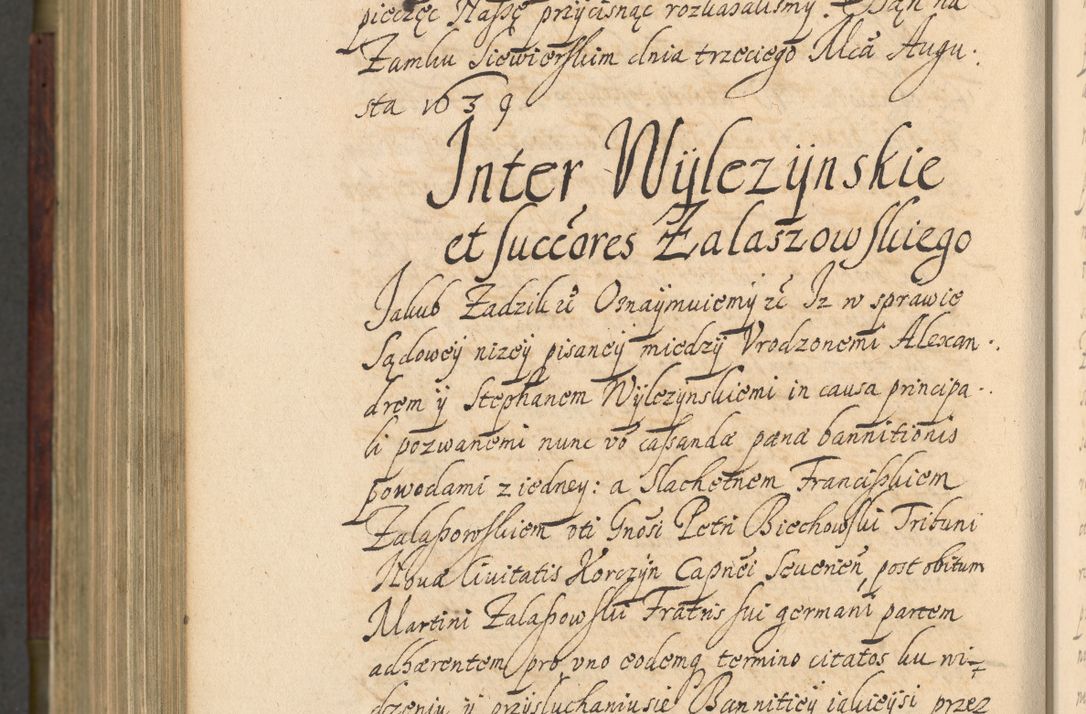 pieczęc Naszę przycisnąc rozkazalismy. Dąn na
Zamku Siewierskim dnia trzeciego Mca Augu.
sta 1639
Inter Wÿlezÿnskie
et succores Zalaszowskiego
Jakub Zadzik etc Oznaÿmuiemÿ etc Iz w sprawie
Sądoweÿ nizeÿ pisaneÿ międzÿ Vrodzonemi Alexan.
drem ÿ Stephanem Wÿlezÿnskiemi in causa principa.
li pozwanemi nunc vo cassandæ pænæ bannitionis
powodami z iedneÿ: a Slachetnem Franciszkiem
Zalaszowskiem vti Gnosi Petri Biechowski Tribuni
Novæ Civitatis Korczÿn Capnei Severien, post obitum
Martini Zalaszowski Fratris sui germani partem
adhærentem pro vno eodemq termino citatos ku wi-
dzeniu ÿ przÿsluchaniusie Banniticÿ iakieÿsi przez